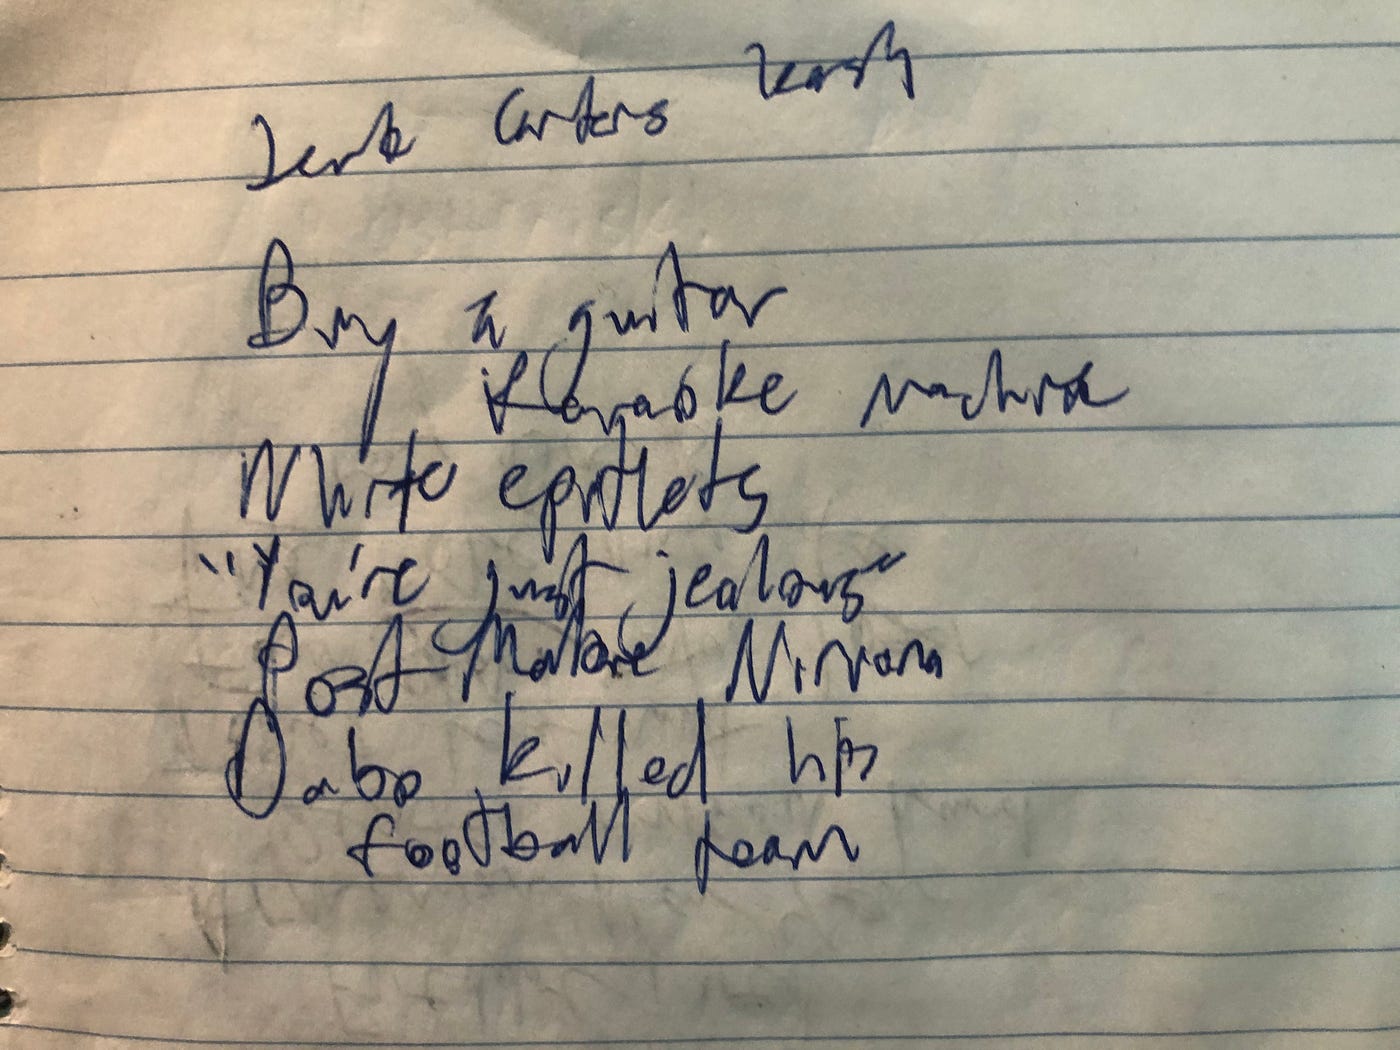 Carters
Buy a guitar
Karaoke machine
White epitlets
"You're just jealous"
Post Malone Nirvana
Dabo killed his
football team